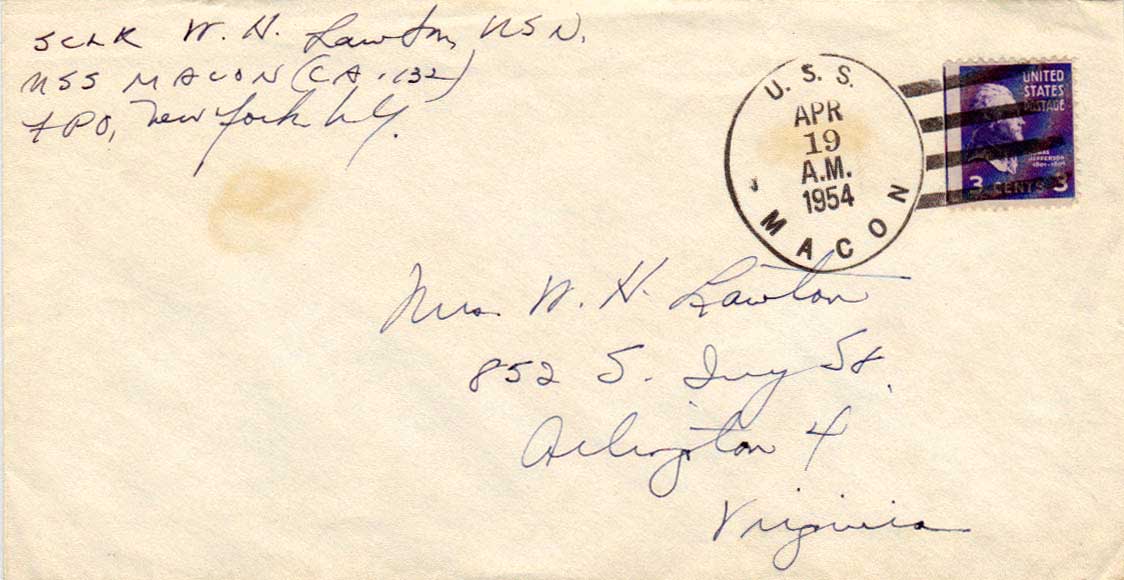 SCLK W. H. Lawton, USN.
USS MACON (CA-132)
FPO, New York N.Y.
U. S. S.
APR
19
A.M.
1954
MACON
UNITED
STATES
POSTAGE
THOMAS
JEFFERSON
1801-1809
3 CENTS 3
Mrs. W. H. Lawton
852 S. Ivy St.
Arlington 4
Virginia